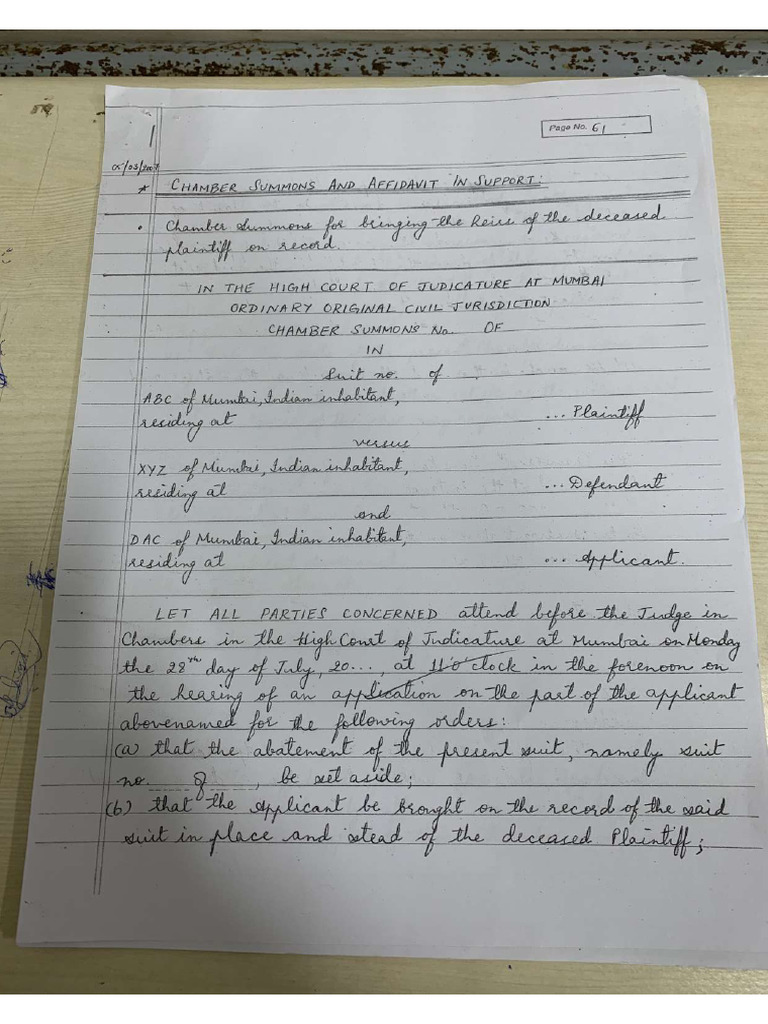 Page No. 61
1
05/03/2007
* CHAMBER SUMMONS AND AFFIDAVIT IN SUPPORT:
• Chamber Summons for bringing the Heirs of the deceased
plaintiff on record.
IN THE HIGH COURT OF JUDICATURE AT MUMBAI
ORDINARY ORIGINAL CIVIL JURISDICTION
CHAMBER SUMMONS No. OF
IN
Suit no. of
ABC of Mumbai, Indian inhabitant,
residing at ... Plaintiff
versus
XYZ of Mumbai, Indian inhabitant,
residing at ... Defendant
and
DAC of Mumbai, Indian inhabitant,
residing at ... Applicant.
LET ALL PARTIES CONCERNED attend before the Judge in
Chambers in the High Court of Judicature at Mumbai on Monday
the 28th day of July, 20..., at 11 o'clock in the forenoon on
the hearing of an application on the part of the applicant
abovenamed for the following orders:
(a) that the abatement of the present suit, namely suit
no. of , be set aside;
(b) that the Applicant be brought on the record of the said
suit in place and stead of the deceased Plaintiff;